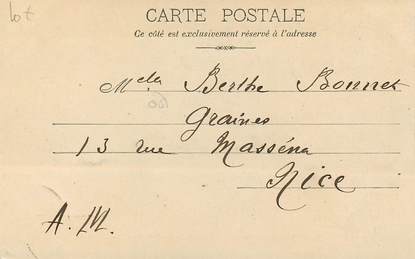 lot
CARTE POSTALE
Ce côté est exclusivement réservé à l'adresse
Mela Berthe Bonnet
Graines
13 rue Masséna
Nice
A.M.